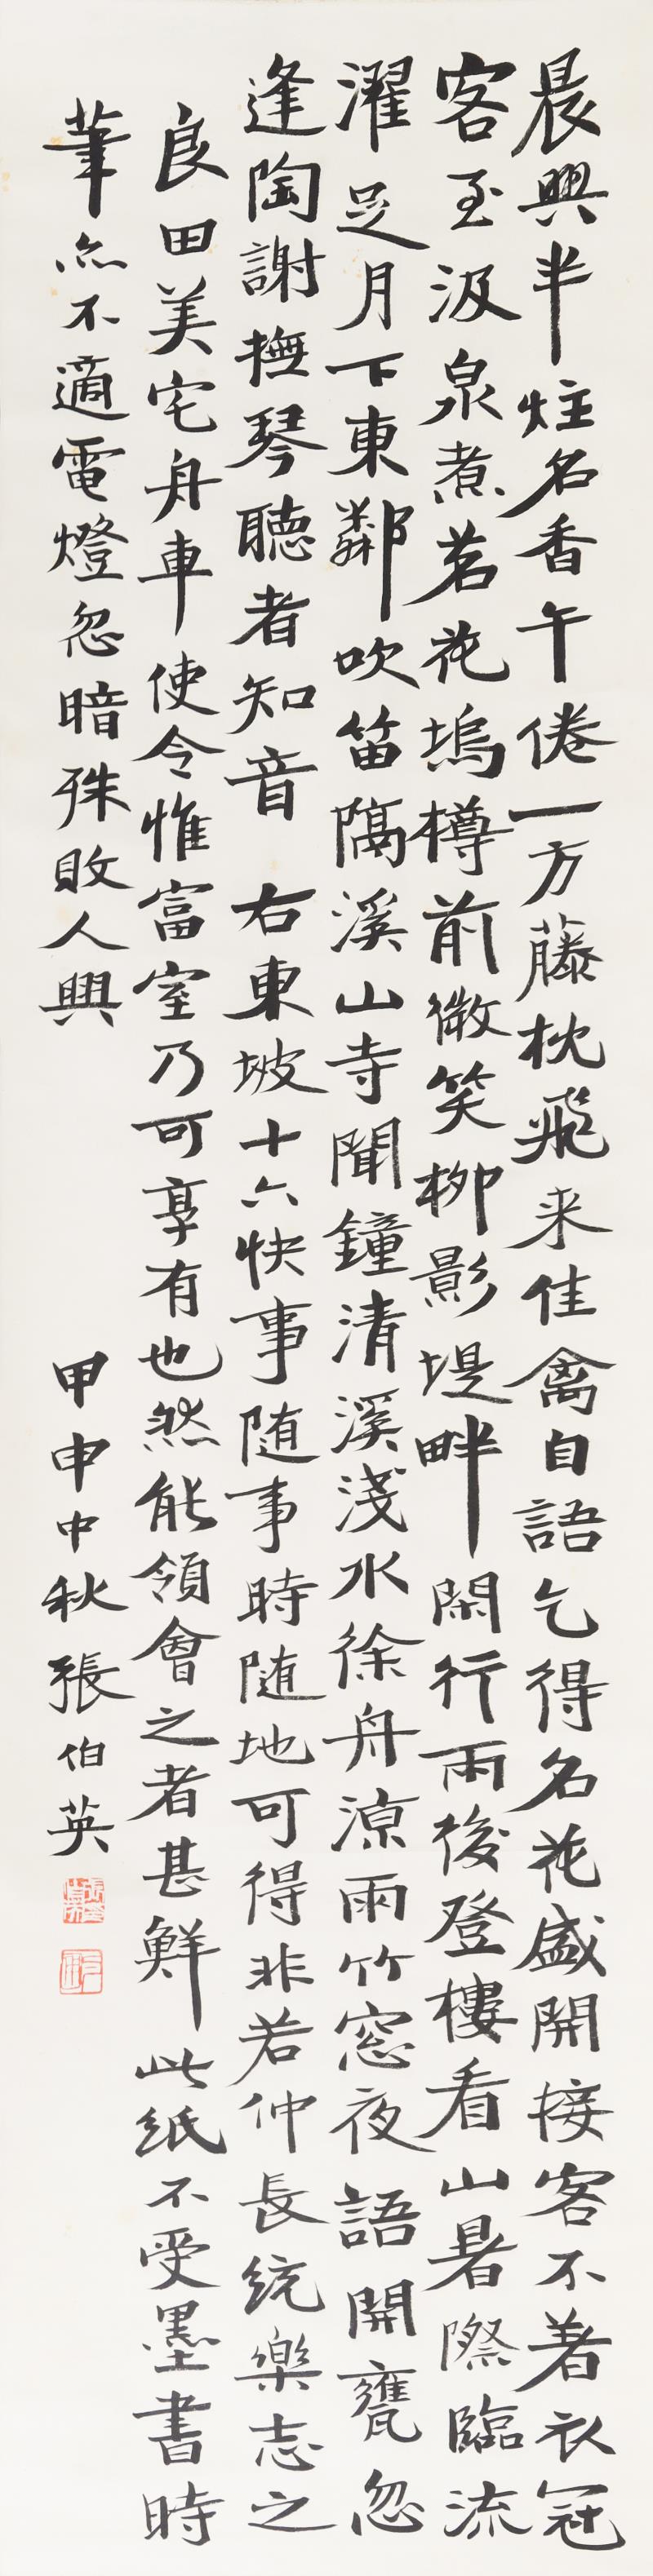 晨興半炷名香午倦一方藤枕飛来佳禽自語乞得名花盛開接客不著衣冠
客至汲泉煮茗花塢樽前微笑柳影堤畔閑行雨後登樓看山暑際臨流
濯足月下東鄰吹笛隔溪山寺聞鐘清溪淺水徐舟涼雨竹窓夜語開甕忽
逢陶謝撫琴聽者知音 右東坡十六快事随事時随地可得非若仲長統樂志之
良田美宅舟車使令惟富室乃可享有也然能領會之者甚鮮 此紙不受墨書時
筆亦不適電燈忽暗殊敗人興 甲申中秋張伯英